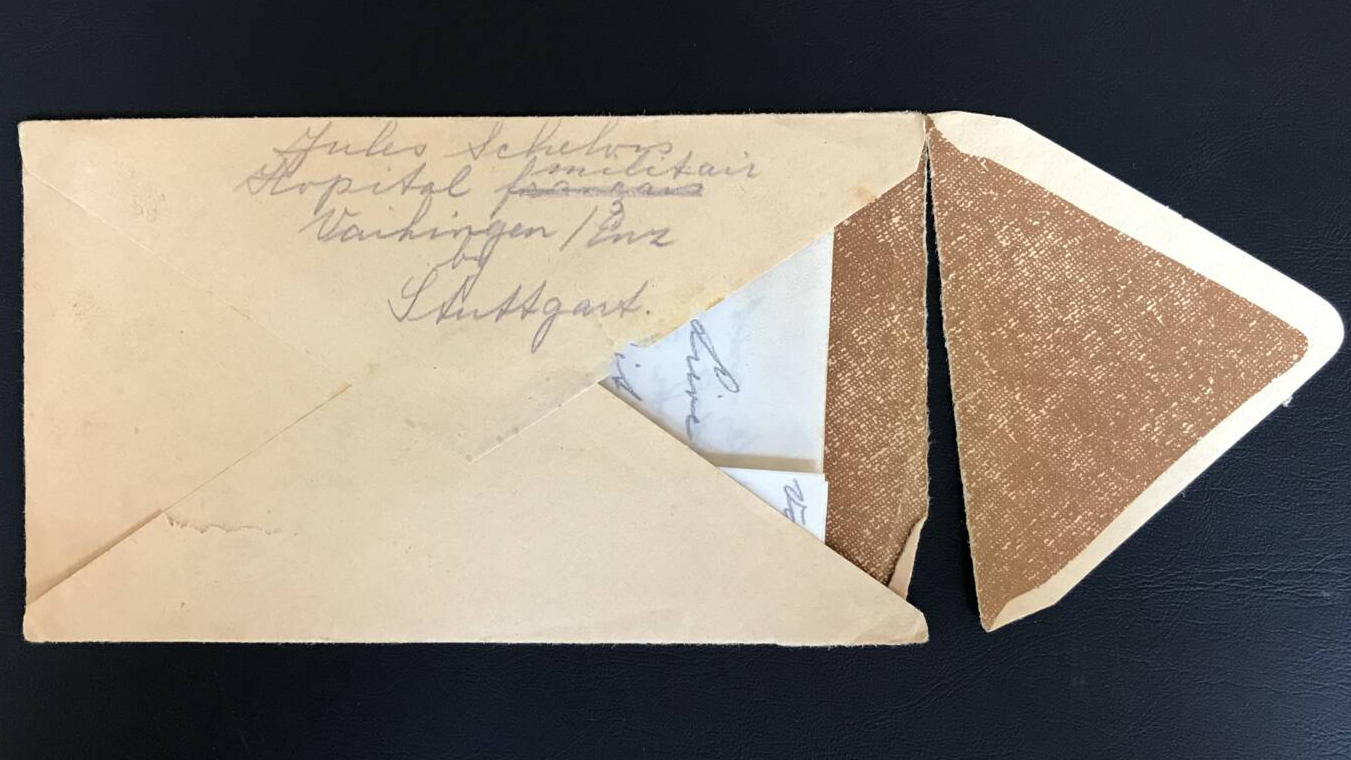 Jules Schelvis
Hopital français militair
Vaihingen /Enz
by
Stuttgart.